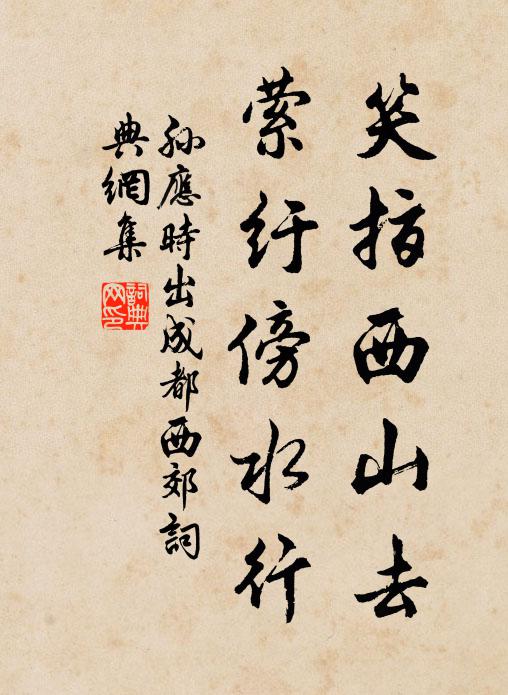 笑指西山去
萦纡傍水行
孙应時出成都西郊詞
典網集
詞典
网印